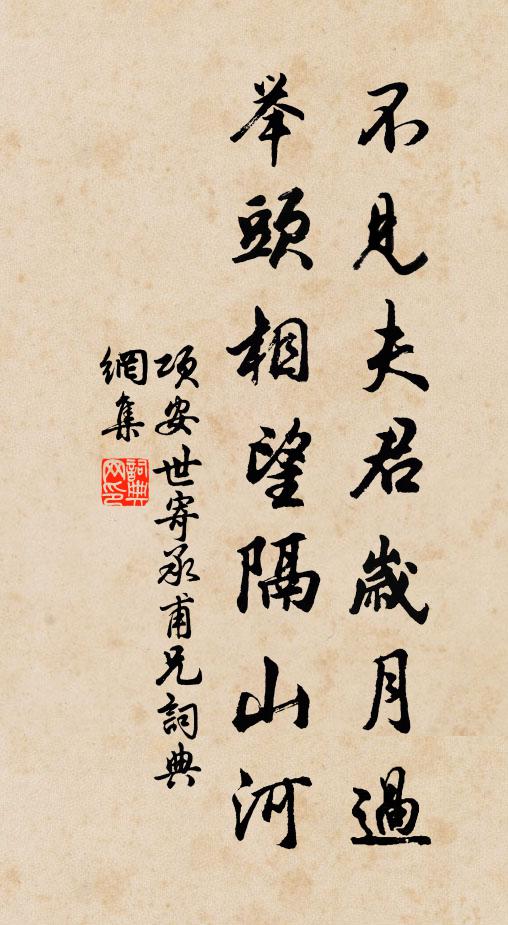 不見夫君歲月過
举頭相望隔山河
項安世寄承甫兄詞典
網集
詞典
网印